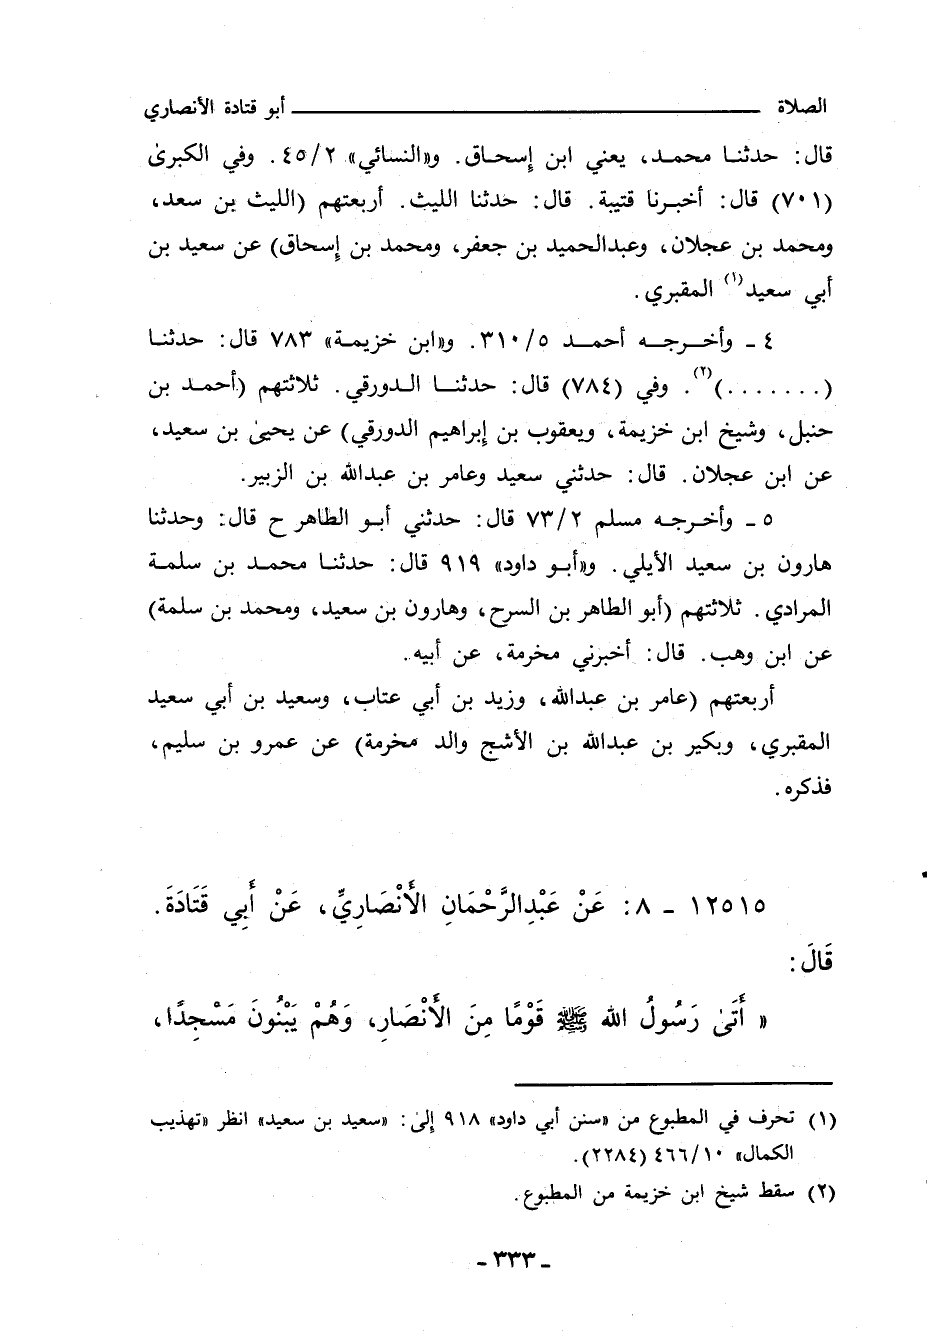 الصلاة ــــــــــــــــ أبو قتادة الأنصاري
قال: حدثنا محمد، يعني ابن إسحاق. و«النسائي» ٤٥/٢. وفي الكبرىٰ
(٧٠١) قال: أخبرنا قتيبة. قال: حدثنا الليث. أربعتهم (الليث بن سعد،
ومحمد بن عجلان، وعبدالحميد بن جعفر، ومحمد بن إسحاق) عن سعيد بن
أبي سعيد(١) المقبري.
٤ ـ وأخرجه أحمد ٣١٠/٥. و«ابن خزيمة» ٧٨٣ قال: حدثنا
(.......)(٢). وفي (٧٨٤) قال: حدثنا الدورقي. ثلاثتهم (أحمد بن
حنبل، وشيخ ابن خزيمة، ويعقوب بن إبراهيم الدورقي) عن يحيىٰ بن سعيد،
عن ابن عجلان. قال: حدثني سعيد وعامر بن عبدالله بن الزبير.
٥ ـ وأخرجه مسلم ٧٣/٢ قال: حدثني أبو الطاهر ح قال: وحدثنا
هارون بن سعيد الأيلي. و«أبو داود» ٩١٩ قال: حدثنا محمد بن سلمة
المرادي. ثلاثتهم (أبو الطاهر بن السرح، وهارون بن سعيد، ومحمد بن سلمة)
عن ابن وهب. قال: أخبرني مخرمة، عن أبيه.
أربعتهم (عامر بن عبدالله، وزيد بن أبي عتاب، وسعيد بن أبي سعيد
المقبري، وبكير بن عبدالله بن الأشج والد مخرمة) عن عمرو بن سليم،
فذكره.
١٢٥١٥ ـ ٨: عَنْ عَبْدِالرَّحْمَانِ الأَنْصَارِيِّ، عَنْ أَبِي قَتَادَةَ.
قَالَ:
« أَتَىٰ رَسُولُ الله ﷺ قَوْمًا مِنَ الأَنْصَارِ، وَهُمْ يَبْنُونَ مَسْجِدًا،
(١) تحرف في المطبوع من «سنن أبي داود» ٩١٨ إلىٰ: «سعيد بن سعيد» انظر «تهذيب
الكمال» ٤٦٦/١٠ (٢٢٨٤).
(٢) سقط شيخ ابن خزيمة من المطبوع.
ـ ٣٣٣ ـ